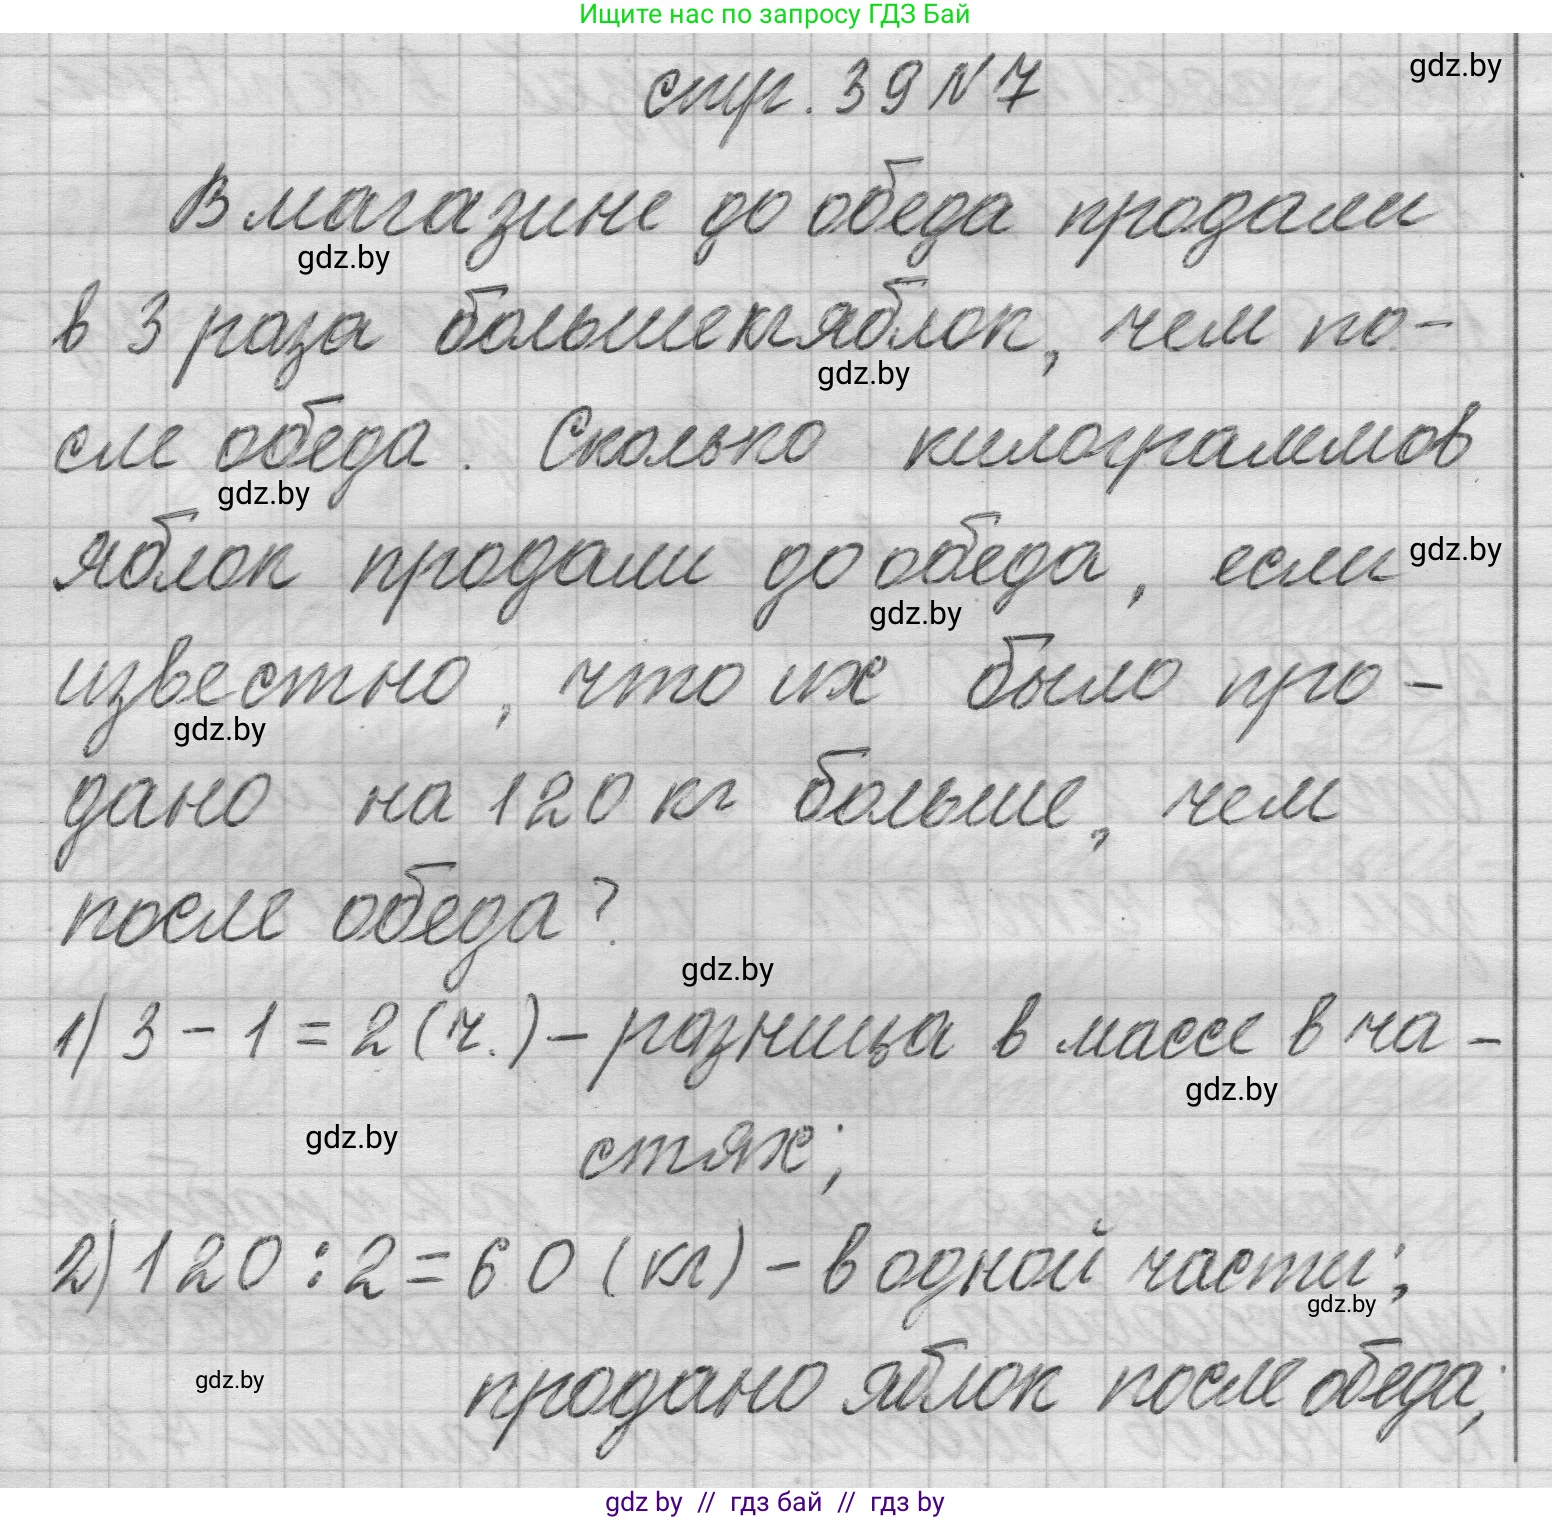 Ищите нас по запросу ГДЗ Бай
стр. 39 N 7
gdz.by
В магазине до обеда продали
gdz.by
в 3 раза больше кг яблок, чем по-
gdz.by
сле обеда. Сколько килограммов
gdz.by
яблок продали до обеда, если
gdz.by
gdz.by
известно, что их было про-
gdz.by
дано на 120 кг больше, чем
после обеда?
gdz.by
1) 3 - 1 = 2 (ч.) - разница в массе в ча-
gdz.by
gdz.by
стях;
2) 120 : 2 = 60 (кг) - в одной части;
gdz.by
gdz.by
продано яблок после обеда;
gdz by // гдз бай // гдз by